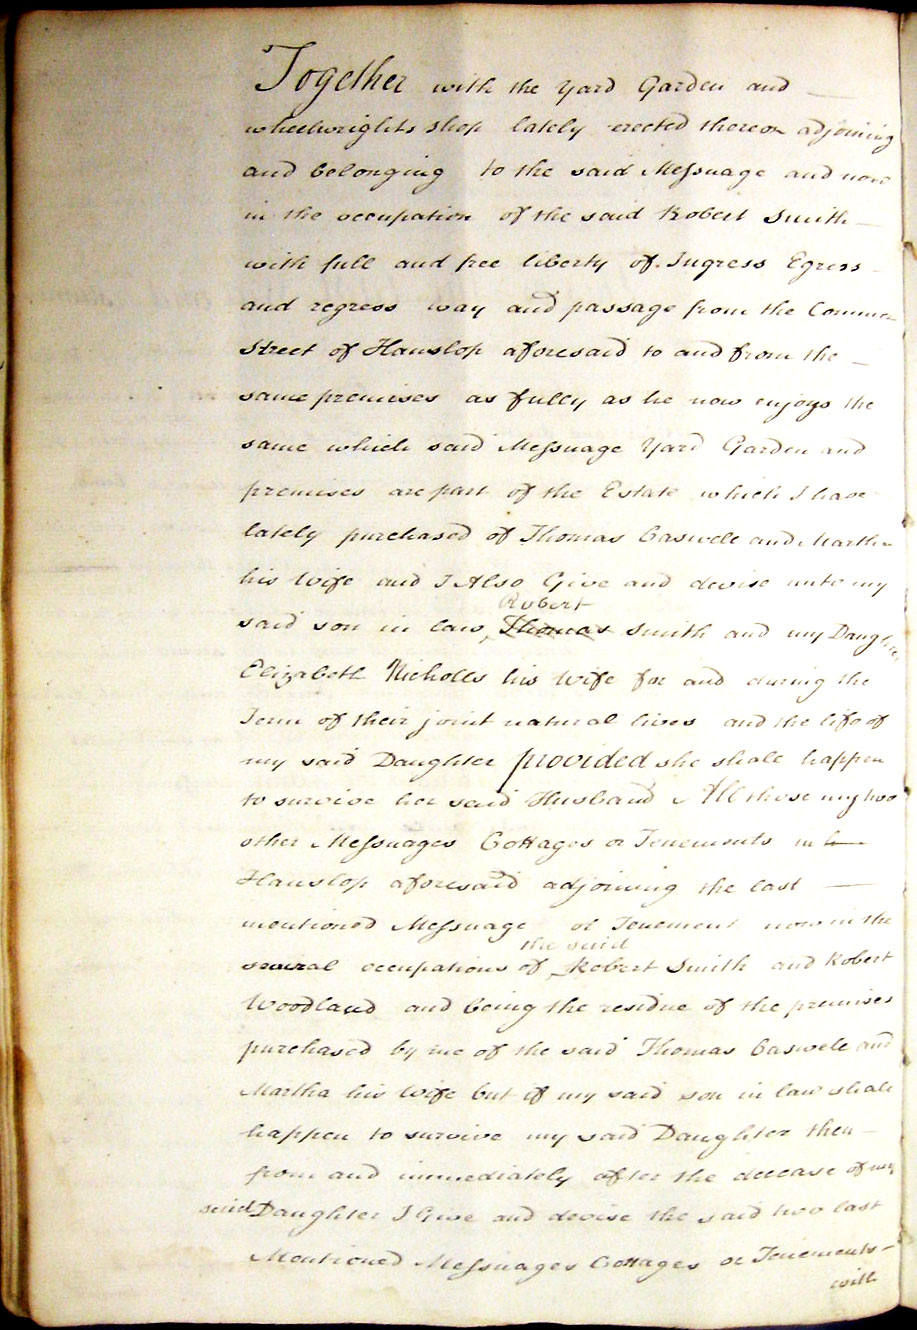 Together with the Yard Garden and
wheelwrights shop lately erected thereon adjoining
and belonging to the said Messuage and now
in the occupation of the said Robert Smith
with full and free liberty of Ingress Egress
and regress way and passage from the Common
Street of Hanslop aforesaid to and from the
same premises as fully as he now enjoys the
same which said Messuage Yard Garden and
premises are part of the Estate which I have
lately purchased of Thomas Caswell and Martha
his Wife and I Also Give and devise unto my
Robert
said son in law Thomas Smith and my Daughter
Elizabeth Nicholls his Wife for and during the
Term of their joint natural lives and the life of
my said Daughter provided she shall happen
to survive her said Husband All those my two
other Messuages Cottages or Tenements in
Hanslop aforesaid adjoining the last
mentioned Messuage or Tenement now in the
the said
several occupations of Robert Smith and Robert
Woodland and being the residue of the premises
purchased by me of the said Thomas Caswell and
Martha his Wife but if my said son in law shall
happen to survive my said Daughter then
from and immediately after the decease of my
said Daughter I Give and devise the said two last
Mentioned Messuages Cottages or Tenements
with